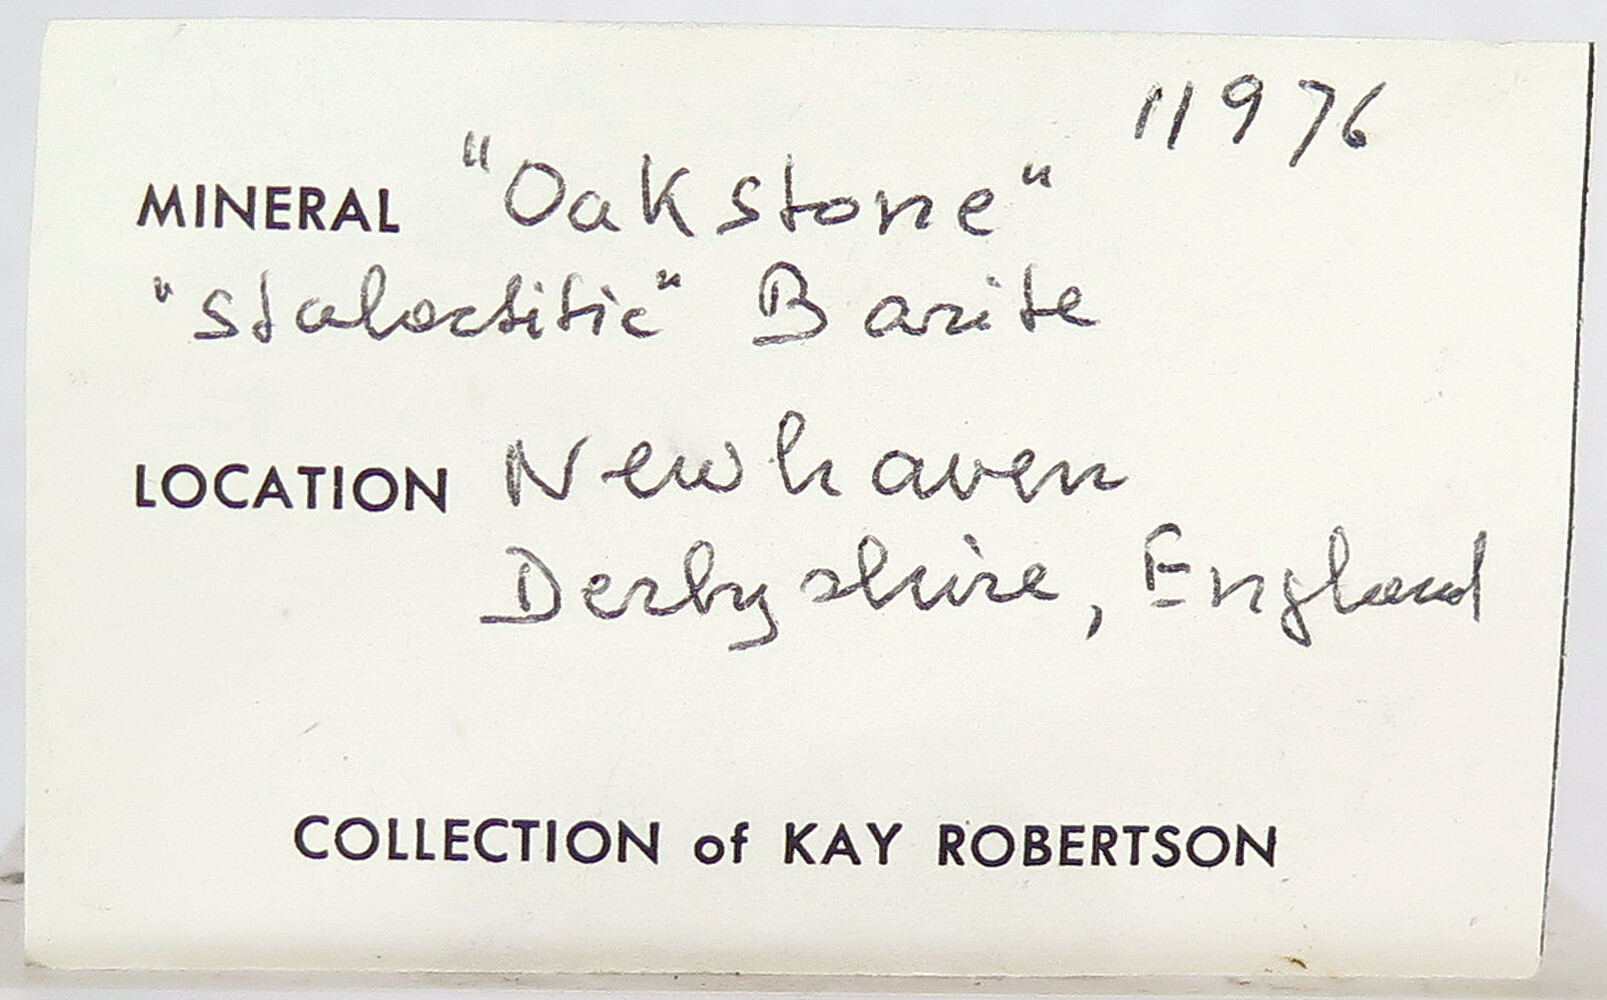 11976
MINERAL "Oakstone"
"stalactitic" Barite
LOCATION Newhaven
Derbyshire, England
COLLECTION of KAY ROBERTSON